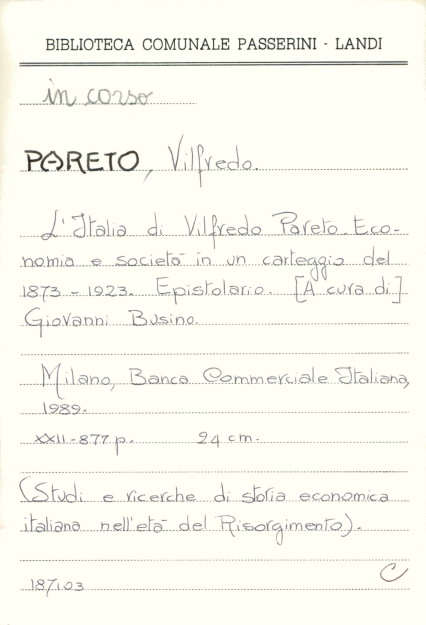 BIBLIOTECA COMUNALE PASSERINI - LANDI
in corso
PARETO, Vilfredo.
L'Italia di Vilfredo Pareto. Eco-
nomia e società in un carteggio del
1873-1923. Epistolario. [A cura di]
Giovanni Busino.
Milano, Banca Commerciale Italiana,
1989.
XXII-877 p. 24 cm.
(Studi e ricerche di storia economica
italiana nell'età del Risorgimento).
187103
C